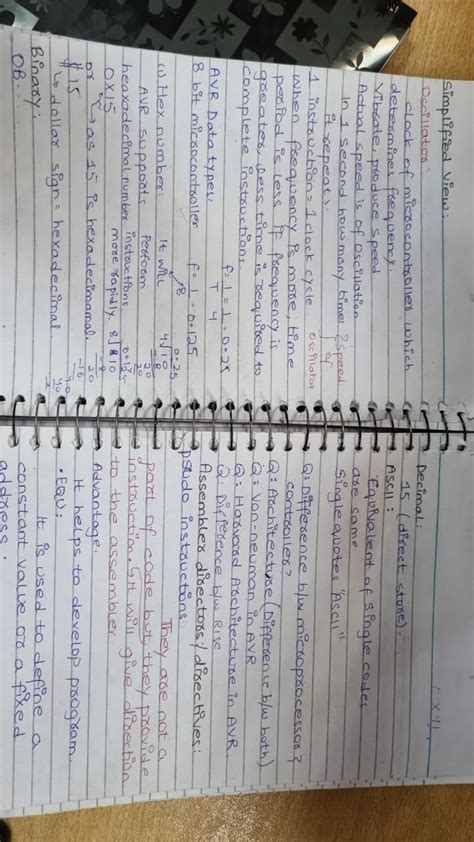 Simplified View:
Oscillator:
clock of microcontroller which
determines frequency.
Vibrate, produce speed
Actual speed is of oscillation
In 1 second how many time
it repeats.
speed
of
oscillator
1 instruction = 1 clock cycle
when frequency is more, time
period is less. If frequency is
greater, less time is required to
complete instructions.
f = 1 = 1 = 0.25
T 4
AVR Data types:
8 bit microcontroller f = 1 = 0.125
8
(i) Hex number: It will
AVR supports perform
heaxadecimal number instructions
0x15 more rapidly.
or as 15 is hexadecimamal
$15
↳ dollar sign = hexadecimal
Binary:
OB
0.25
4√10
-8
20
Decimal:
15 (direct store).
ASCII:
Equivalent of single codes
are same
single quotes "ASCII"
Q: Difference b/w microprocessor?
controller?
Q: Architecture (Difference b/w both)
Q: Von-neuman in AVR
Q: Harvard Architecture in AVR
Q: Difference b/w Risc
Assembler directors/directives:
psudo instructions.
They are not a
part of code but they provide
instruction. It will give direction
to the assembler
Advantage:
It helps to develop program
.EQU:
It is used to define a
constant value or a fixed
address.